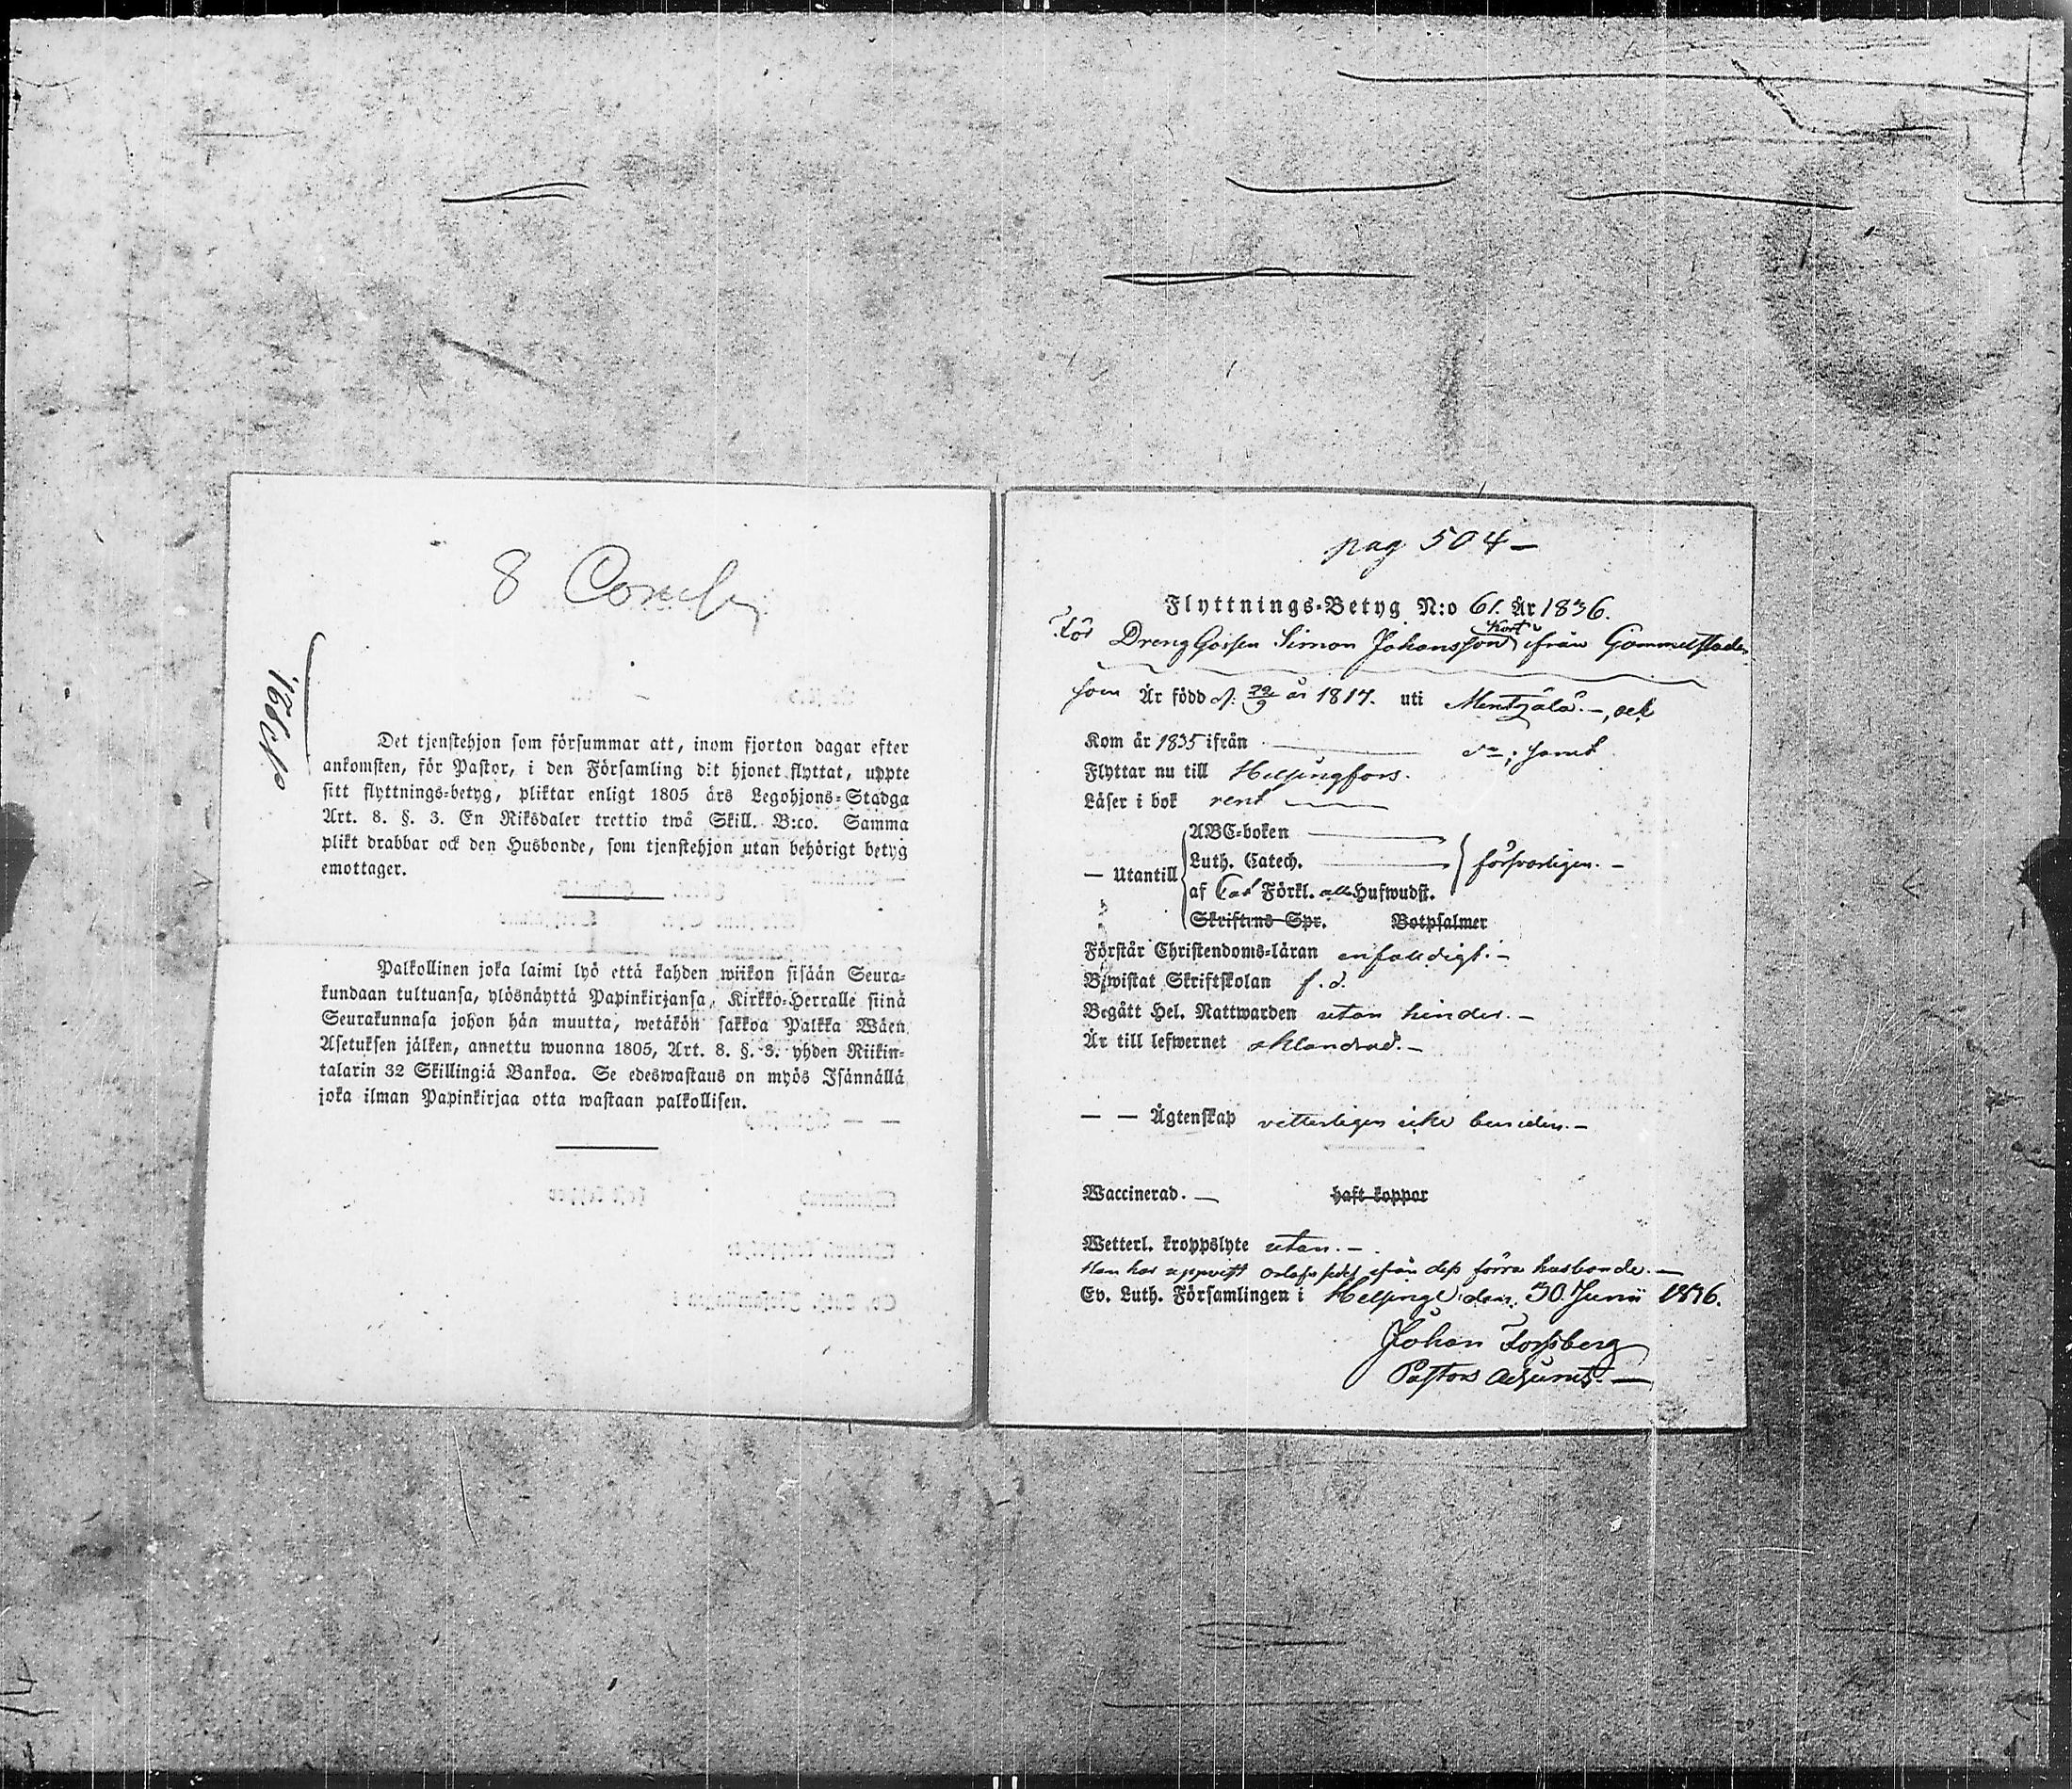 8
Det tjenstehjon som försummar att, inom fjorton dagar efter
ankomsten, för Pastor, i den Församling dit hjonet flyttat, uppte
sitt flyttnings-betyg, pliktar enligt 1805 års Legohjons-Stadga
Art. 8. §. 3. En Riksdaler trettio twå Skill. B:co. Samma
plikt drabbar ock den Husbonde, som tjenstehjon utan behörigt betyg
emottager.
Palkollinen joka laimi lyö että kahden wiikon sisään Seura-
kundaan tultuansa, ylösnäyttä Papinkirjansa, Kirkko-Herralle siinä
Seurakunnasa johon hän muutta, wetäkön sakkoa Palkka Wäen
Asetuksen jälken, annettu wuonna 1805, Art. 8. §. 3. yhden Riikin-
talarin 32 Skillingiä Bankoa. Se edeswastaus on myös Isännällä
joka ilman Papinkirjaa otta wastaan palkollisen.
pag 504
Flyttnings-Betyg N:o 61. År 1836.
För Dreng Gossen Simon Johansson ifrån Gammelstaden
som Är född d. 29/9 år 1817. uti Mentzälä, och
Kom år 1835 ifrån
Flyttar nu till Helsingfors.
Läser i bok rent
ABC-boken
Luth. Catech. försvarligen.
— Utantill
af Förkl. alla Hufwudst.
Skriftens Spr. Botpsalmer
Förstår Christendoms-läran enfaldigt.
Biwistat Skriftskolan f. d.
Begått Hel. Nattwarden utan hinder.
Är till lefwernet oklandrad.
— — Ägtenskap vetterligen icke bunden.
Waccinerad. — haft koppor
Wetterl. kroppslyte utan.
Han har uppvist Orlofs sedel ifrån dess förra husbonde.
Ev. Luth. Församlingen i Helsinge den 30 Junii 1836.
Johan Forssberg
Pastors Adjunct.